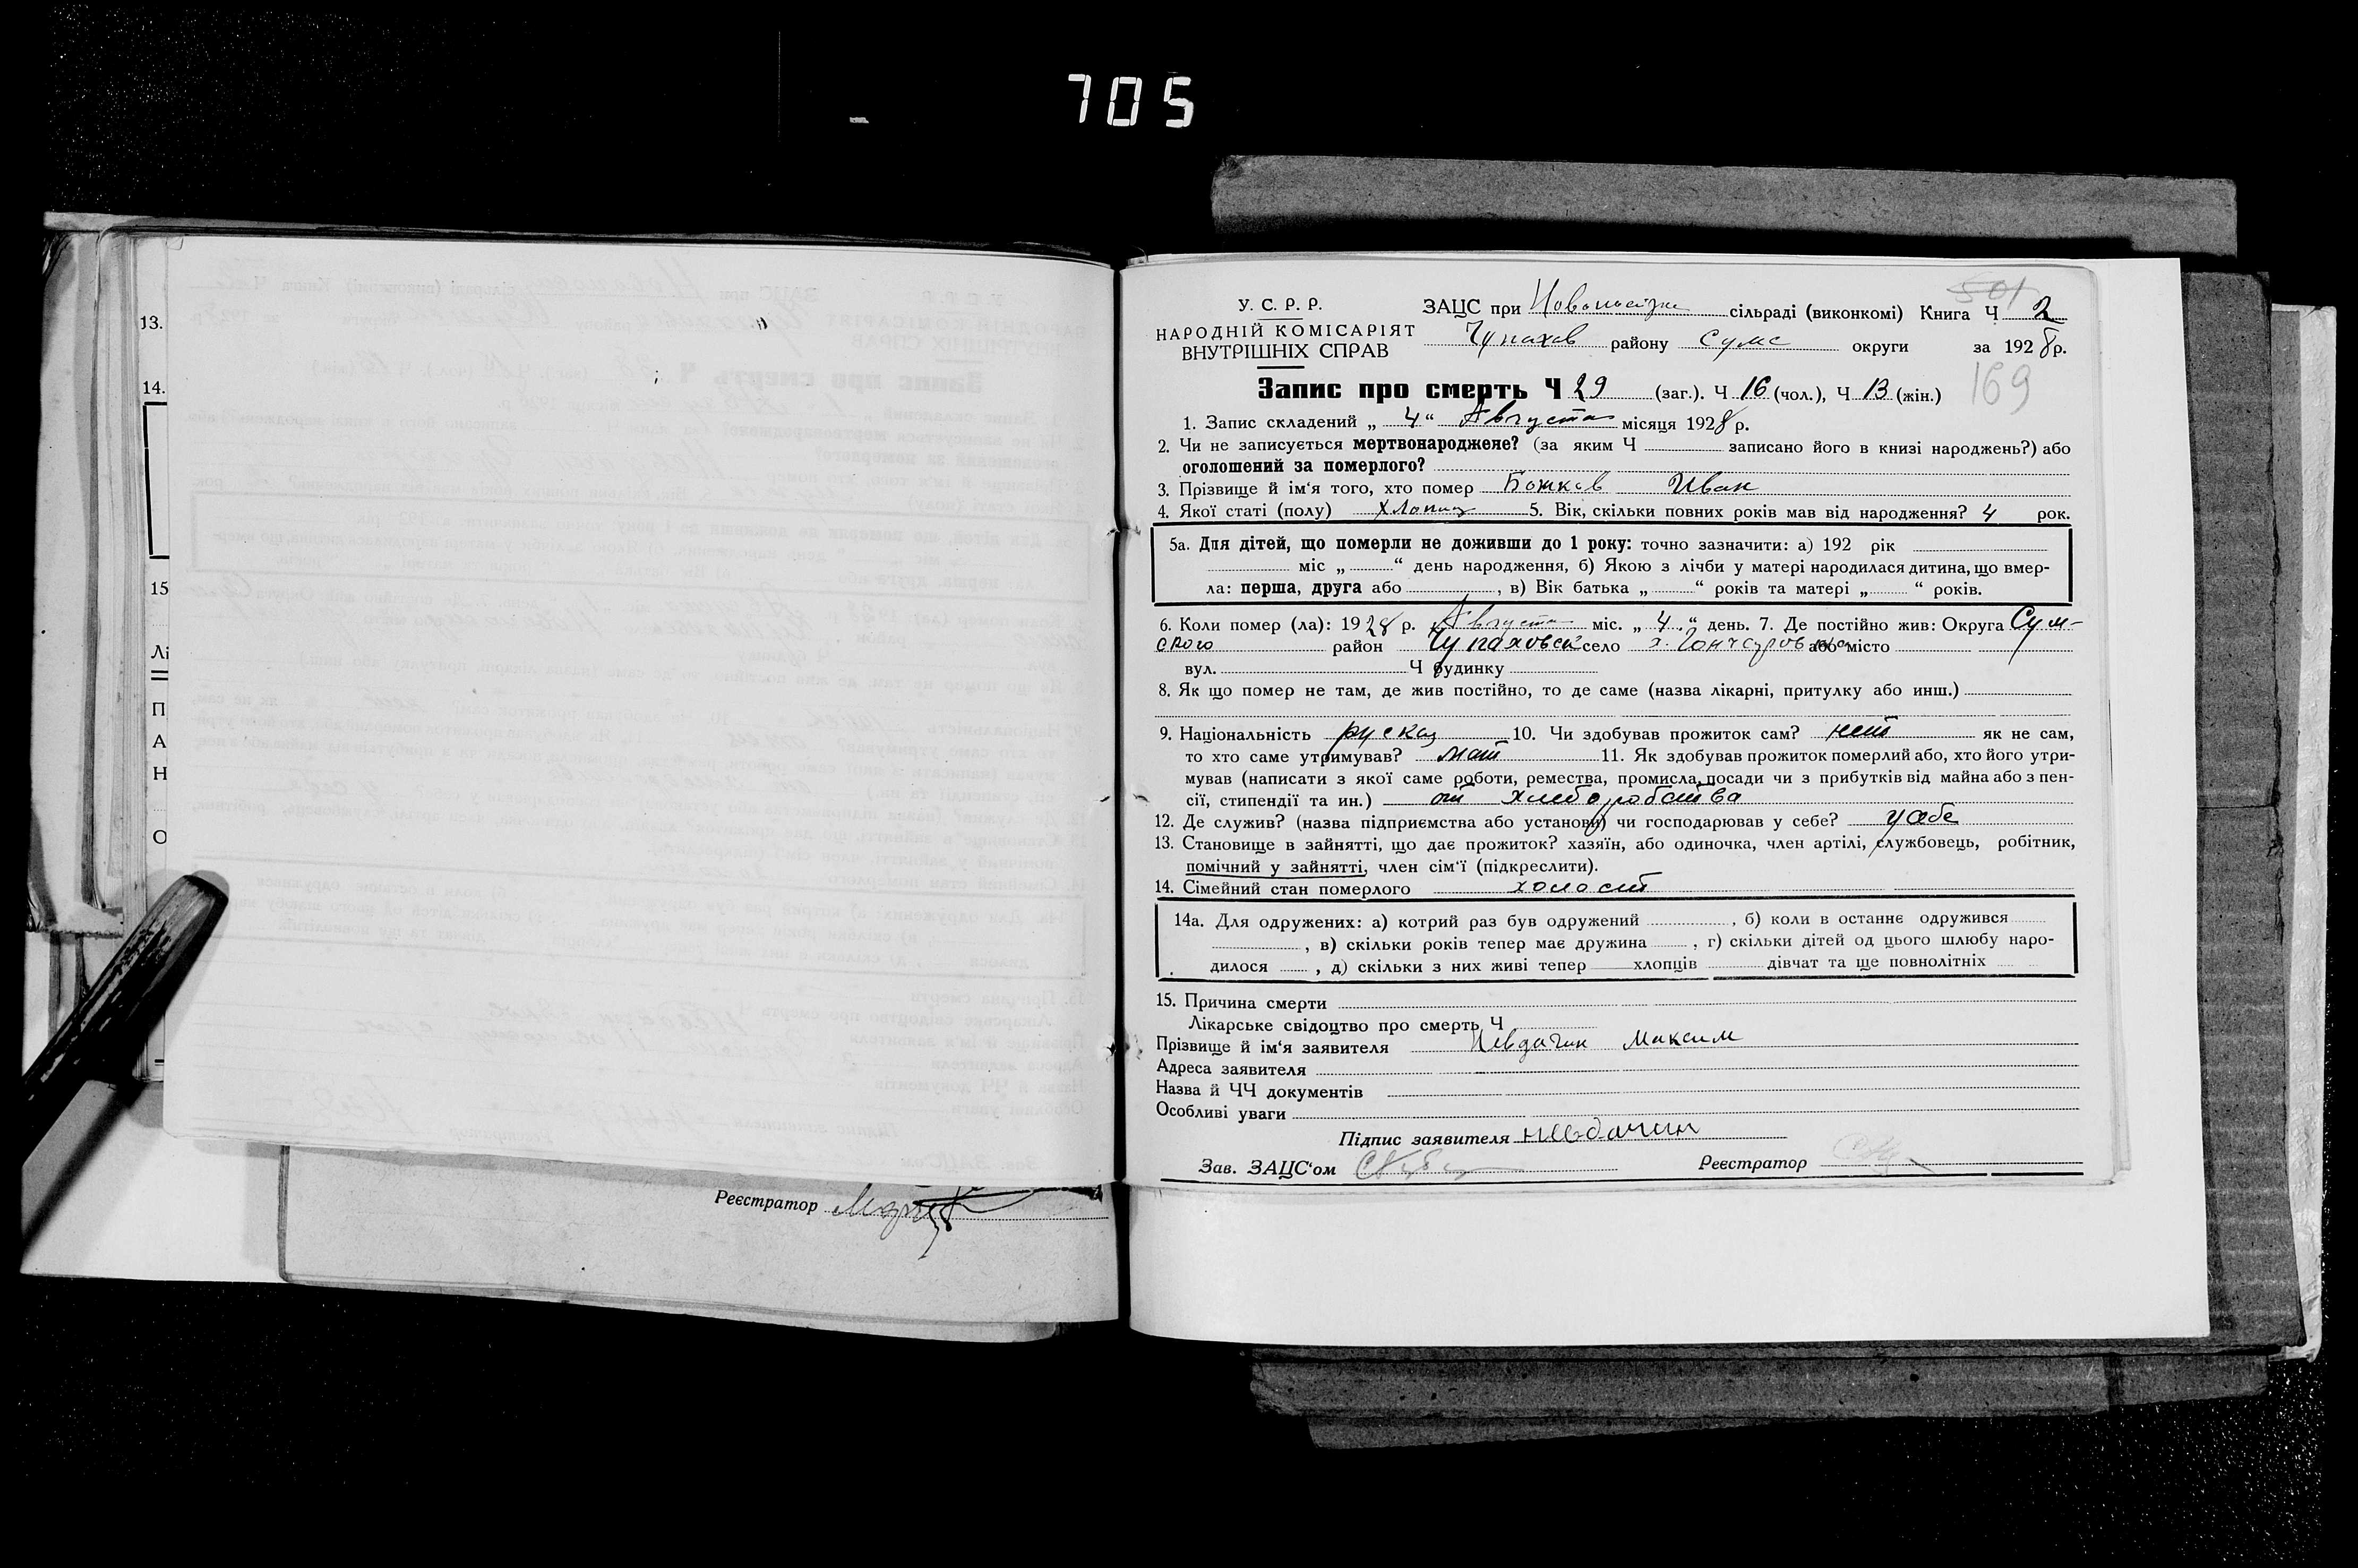 705
13.
14.
15
Лі
П
А
Н
О
Реєстратор
501
У. С. Р. Р.
НАРОДНІЙ КОМІСАРІЯТ
ВНУТРІШНІХ СПРАВ
ЗАЦС при сільраді (виконкомі) Книга Ч 2
Чупахов району Сумс округи за 1928 р.
169
Запис про смерть Ч 29 (заг.). Ч 16 (чол.), Ч 13 (жін.)
1. Запис складений „ 4 “ Августа місяця 1928 р.
2. Чи не записується мертвонароджене? (за яким Ч записано його в книзі народжень?) або
оголошений за померлого?
3. Прізвище й ім'я того, хто помер Божков Иван
4. Якої статі (полу) хлопиц 5. Вік, скільки повних років мав від народження? 4 рок.
5а. Для дітей, що померли не доживши до 1 року: точно зазначити: а) 192 рік
міс „ “ день народження, б) Якою з лічби у матері народилася дитина, що вмер-
ла: перша, друга або , в) Вік батька „ “ років та матері „ “ років.
6. Коли помер (ла): 1928 р. Августа міс. „ 4 “ день. 7. Де постійно жив: Округа Сум-
ского район Чупаховск село х. або місто
вул. Ч будинку
8. Як що помер не там, де жив постійно, то де саме (назва лікарні, притулку або инш.)
9. Національність 10. Чи здобував прожиток сам? нет як не сам,
то хто саме утримував? мат 11. Як здобував прожиток померлий або, хто його утри-
мував (написати з якої саме роботи, ремества, промисла, посади чи з прибутків від майна або з пен-
сії, стипендії та ин.) от хлеборобства
12. Де служив? (назва підприємства або установи) чи господарював у себе? у себе
13. Становище в зайнятті, що дає прожиток? хазяїн, або одиночка, член артілі, службовець, робітник,
помічний у зайнятті, член сім'ї (підкреслити).
14. Сімейний стан померлого холост
14а. Для одружених: а) котрий раз був одружений , б) коли в останнє одружився
, в) скільки років тепер має дружина , г) скільки дітей од цього шлюбу наро-
дилося , д) скільки з них живі тепер хлопців дівчат та ще повнолітніх
15. Причина смерти
Лікарське свідоцтво про смерть Ч
Прізвище й ім'я заявителя Невдачин Максим
Адреса заявителя
Назва й ЧЧ документів
Особливі уваги
Підпис заявителя невдачин
Зав. ЗАЦС'ом Реєстратор